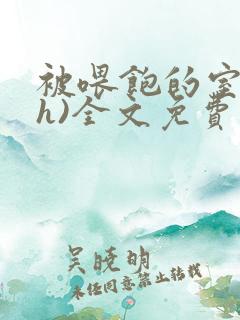 被喂飽的室
h)全文免費
吴晓明
未经同意禁止转载